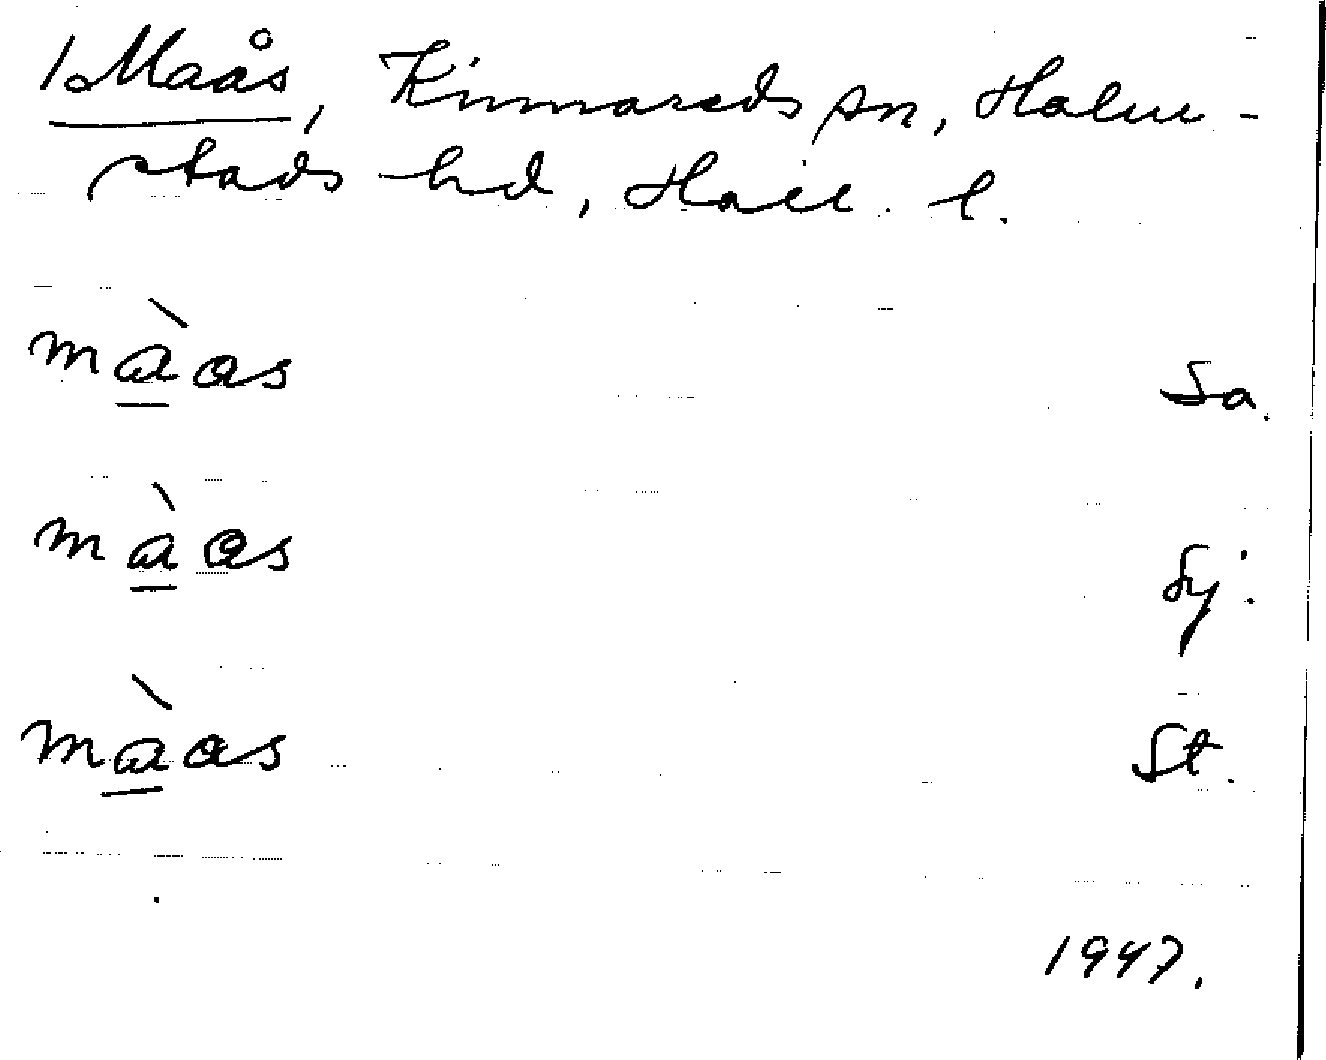 1. Maås, Kinnareds sn, Halm-
stads hd, Hall. l.
màas Sa.
màas Sj.
màas St.
1947.